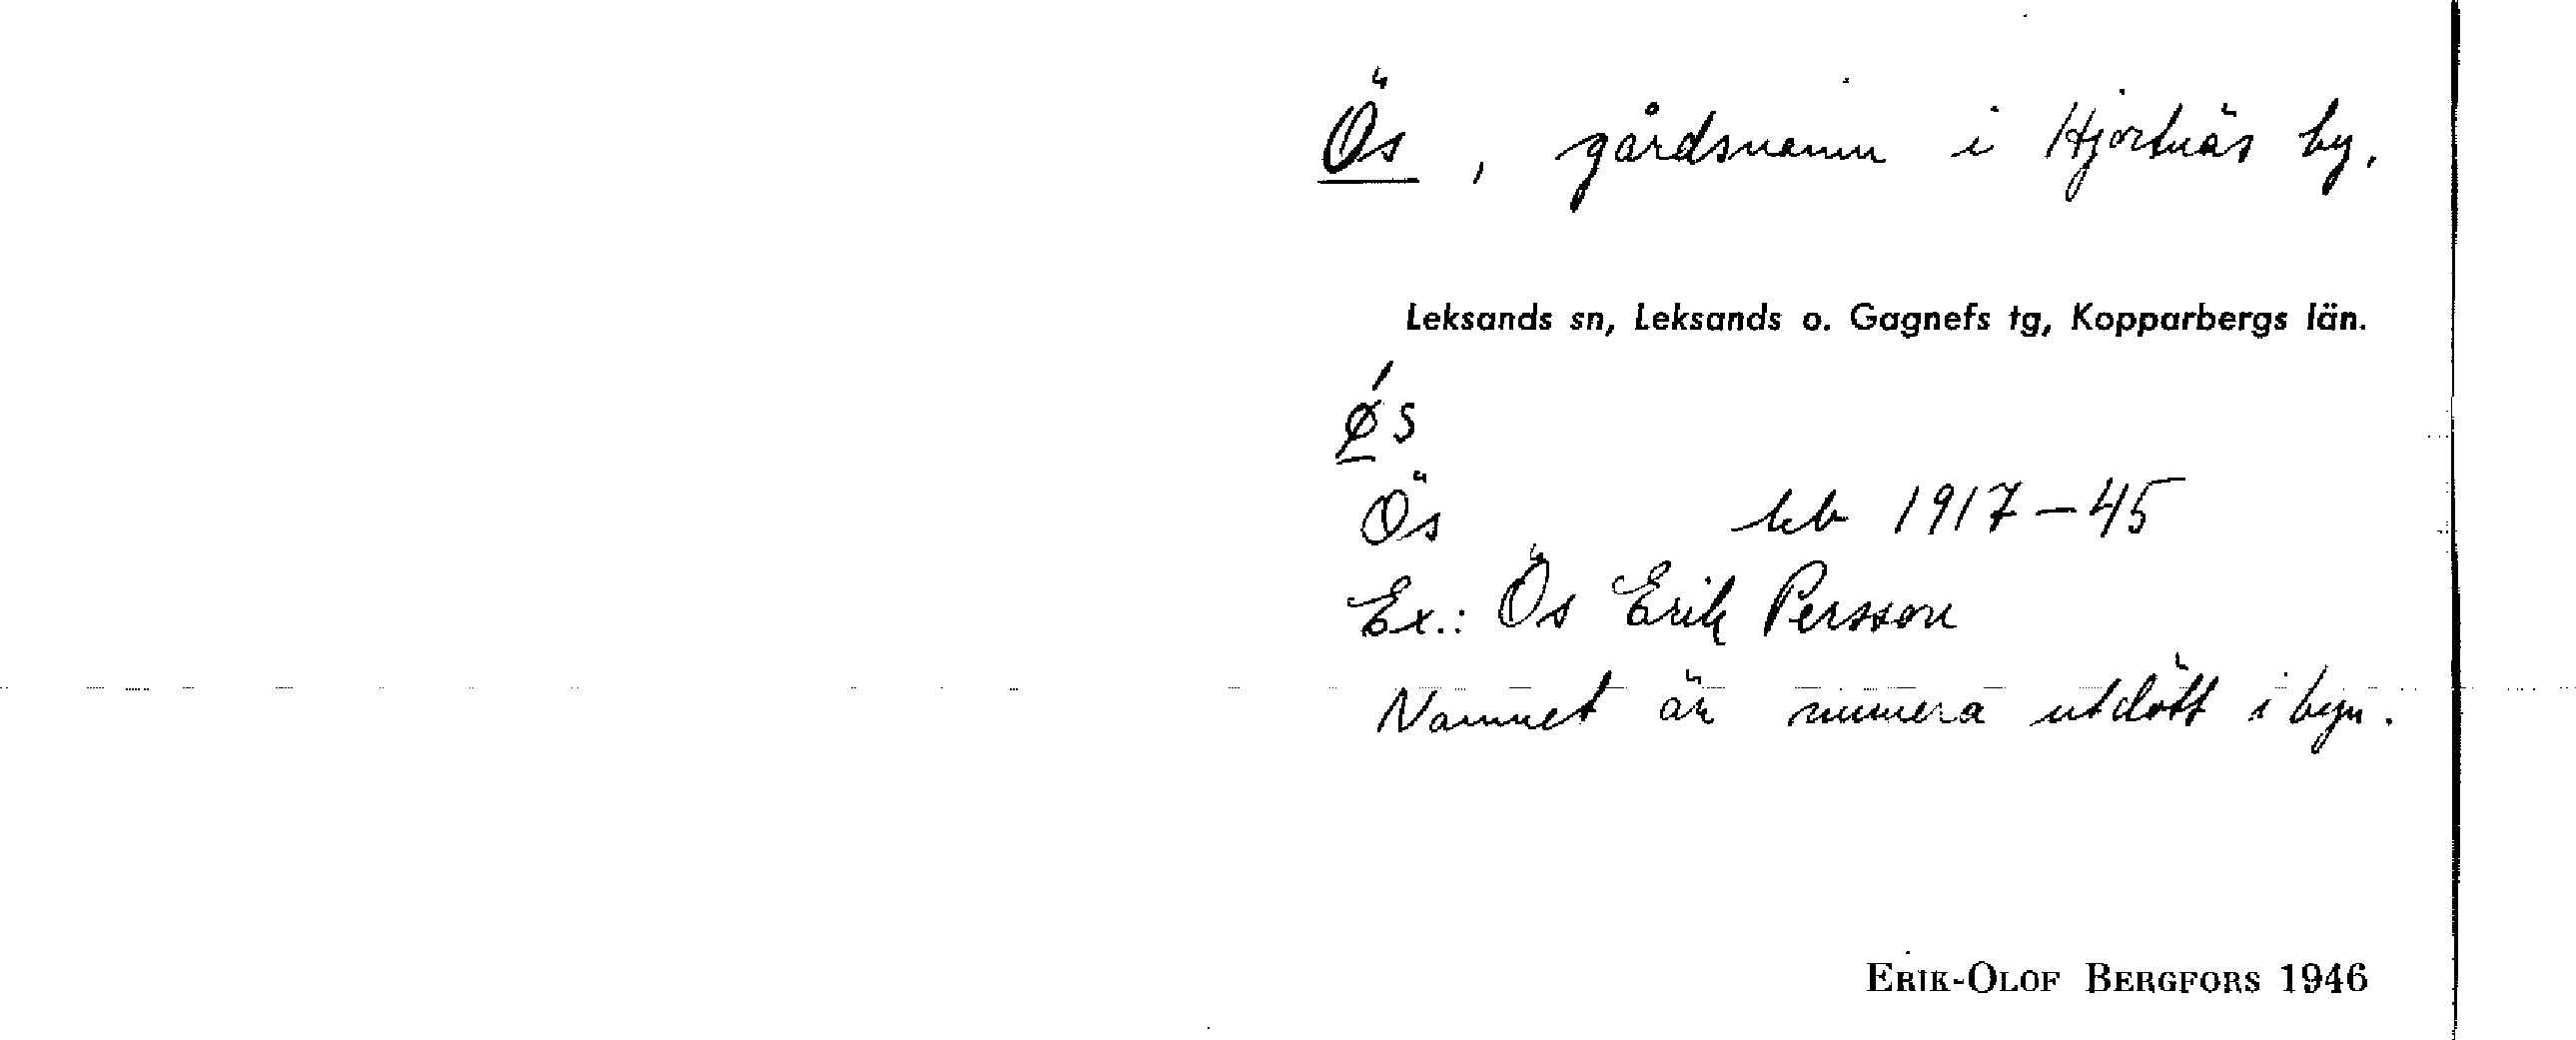 Ös, gårdsnamn i Hjortnäs by.
Leksands sn, Leksands o. Gagnefs tg, Kopparbergs län.
ǿs
Ös kb 1917-45
Ex.: Ös Erik Persson
Namnet är numera utdött i byn.
ERIK-OLOF BERGFORS 1946